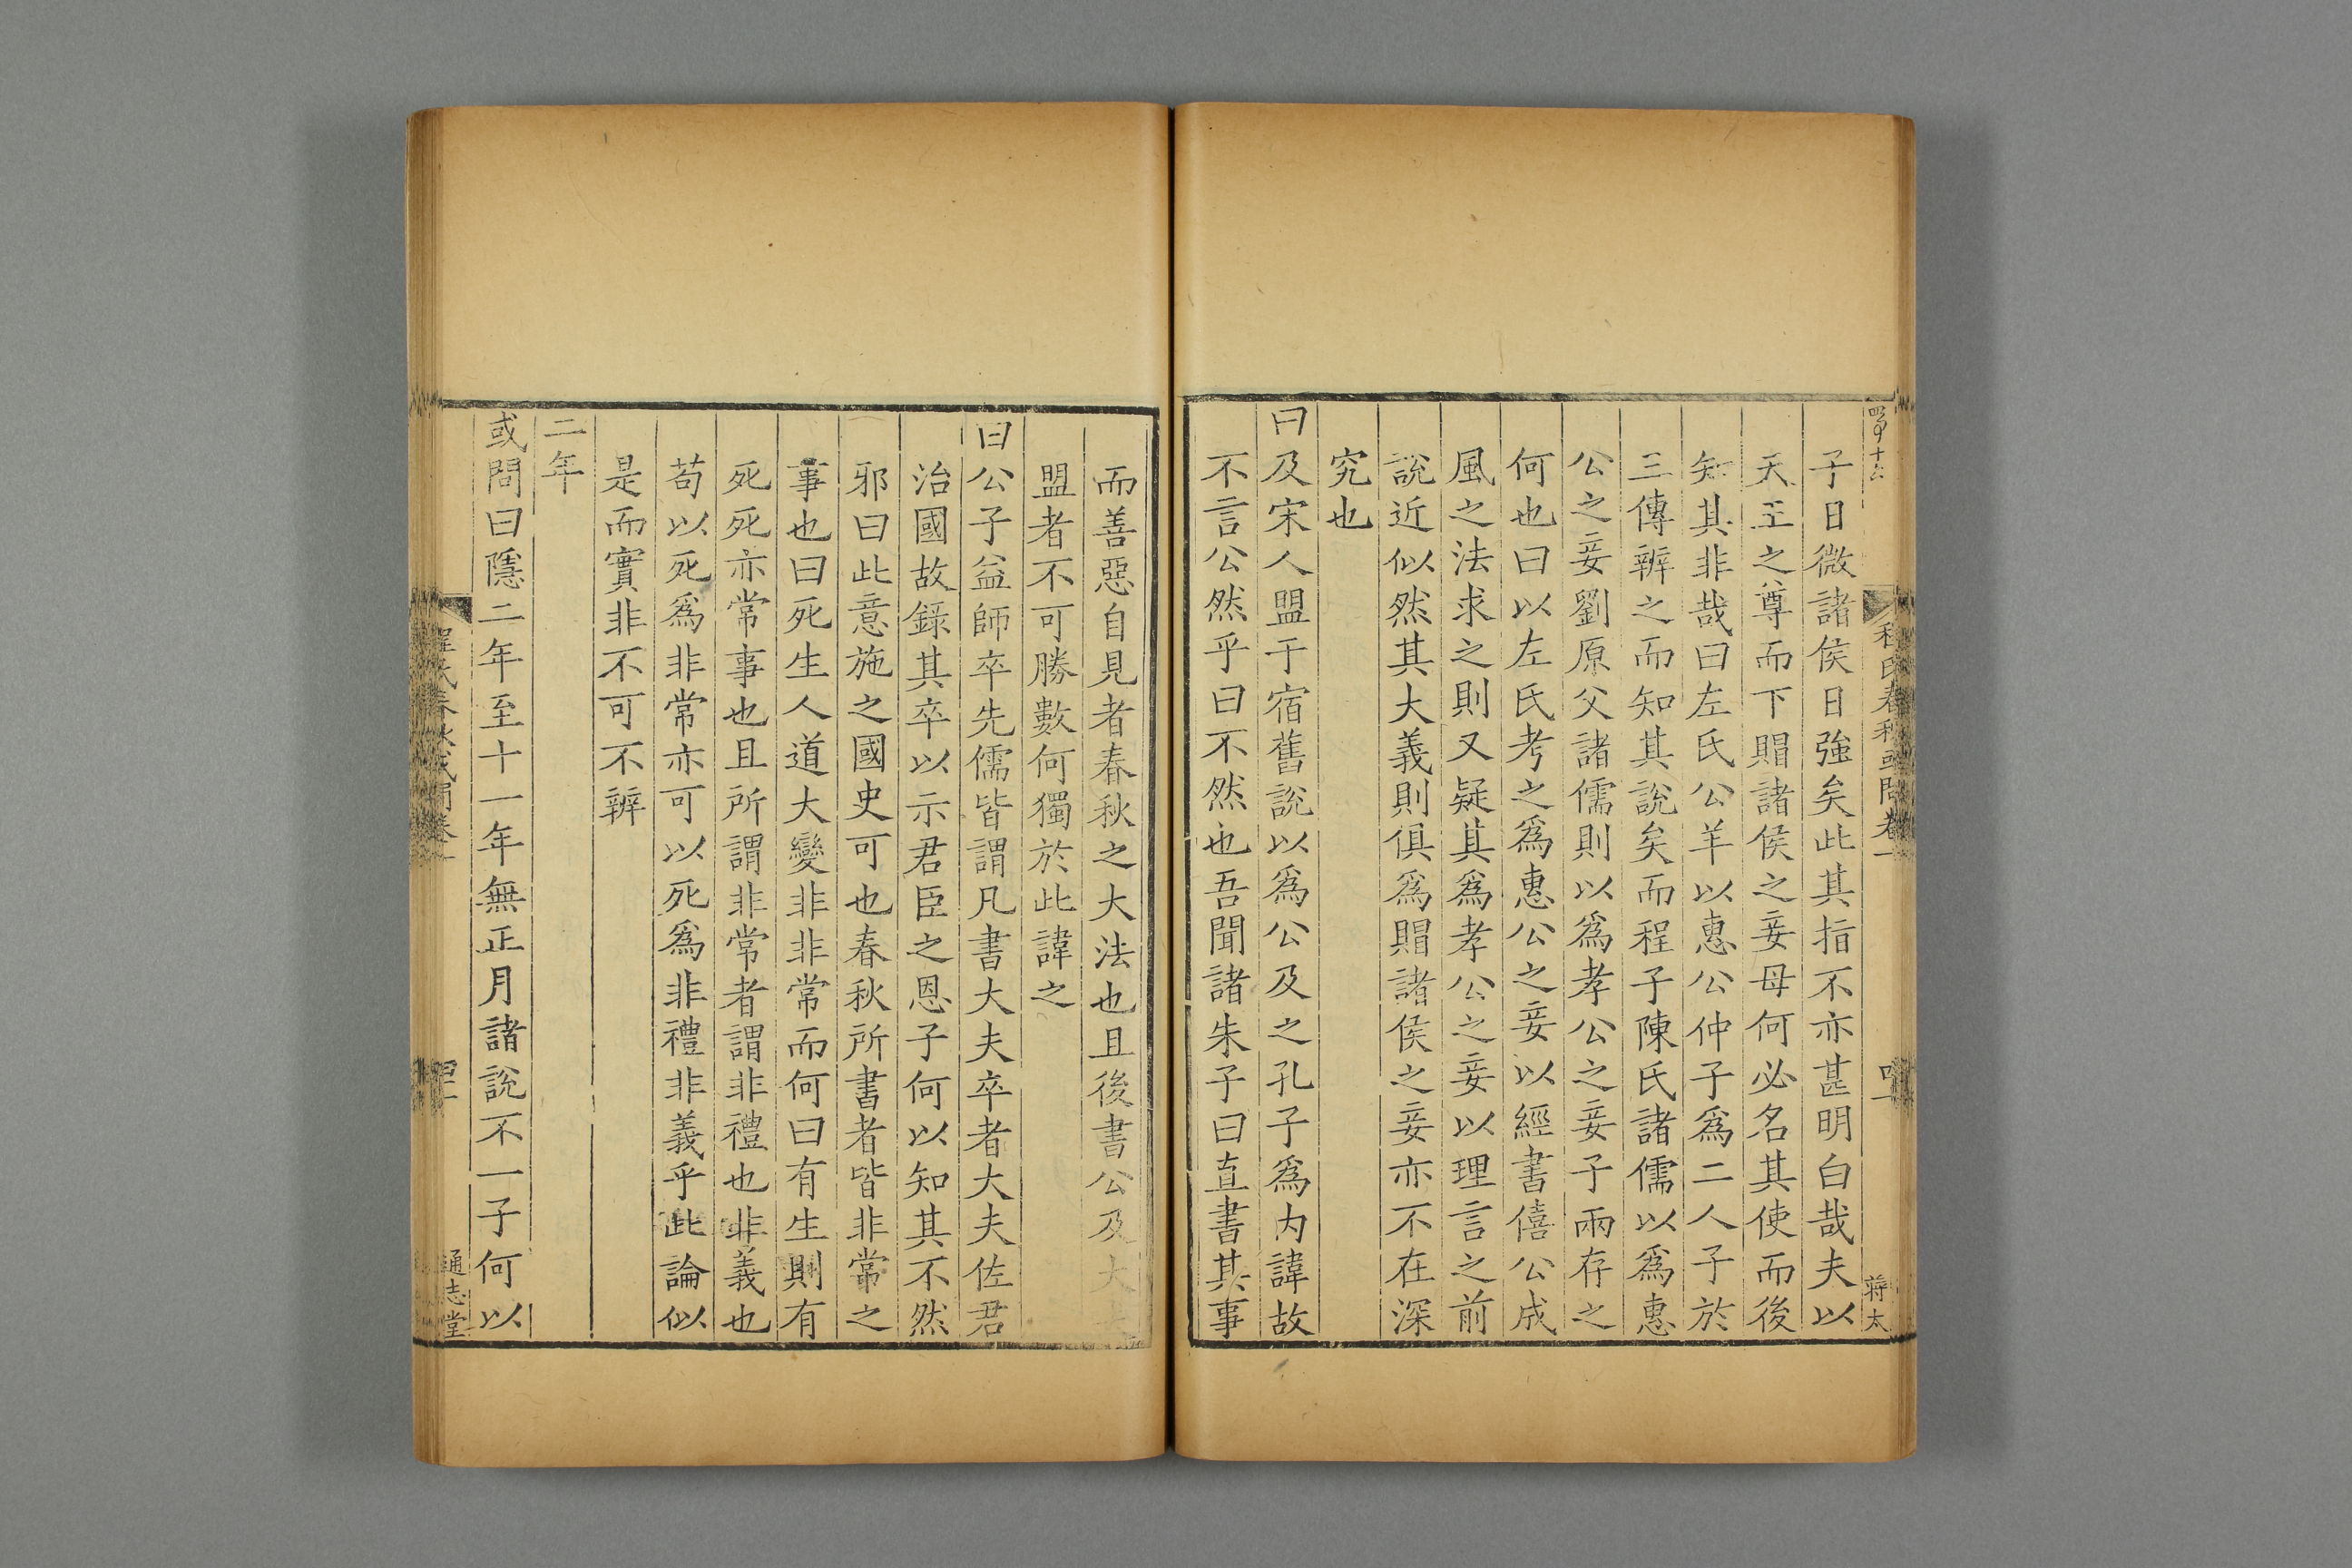 子日微諸侯日強矣此其指不亦甚明白哉夫以
天王之尊而下賵諸侯之妾母何必名其使而後
知其非哉曰左氏公羊以惠公仲子爲二人子於
三傳辨之而知其說矣而程子陳氏諸儒以爲惠
公之妾劉原父諸儒則以爲孝公之妾子兩存之
何也曰以左氏考之爲惠公之妾以經書僖公成
風之法求之則又疑其爲孝公之妾以理言之前
說近似然其大義則俱爲賵諸侯之妾亦不在深
究也
曰及宋人盟于宿舊說以爲公及之孔子爲内諱故
不言公然乎曰不然也吾聞諸朱子曰直書其事
蔣太
而善惡自見者春秋之大法也且後書公及大
盟者不可勝數何獨於此諱之
曰公子益師卒先儒皆謂凡書大夫卒者大夫佐君
治國故錄其卒以示君臣之恩子何以知其不然
邪曰此意施之國史可也春秋所書者皆非常之
事也曰死生人道大變非非常而何曰有生則有
死死亦常事也且所謂非常者謂非禮也非義也
苟以死爲非常亦可以死爲非禮非義乎此論似
是而實非不可不辨
二年
或問曰隱二年至十一年無正月諸說不一子何以
程氏春秋或問卷一
通志堂